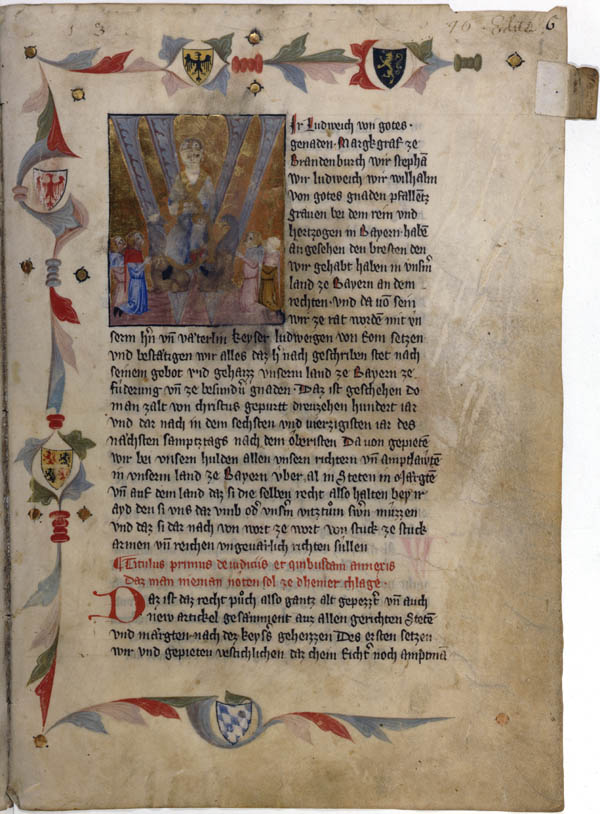 13
40 Edito 6
Ir Ludweich von gotes
genaden Margkgraf ze
Brandenburch wir stephā
wir ludweich wir wilhalm
von gotes gnaden pfallentz
grauen bei dem rein vnd
hertzogen in Bayern habē
an gesehen den bresten den
wir gehabt haben in vnsm̄
land ze Bayern an dem
rechten vnd da uō sein
wir ze rat wordē mit vn
serm h̄n vn̄ vaterlin keyser ludweigen von Rom setzen
vnd bestätigen wir alles daz h̄ nach geschriben stet nach
seinem gebot vnd gehaizz vnserm land ze Bayern ze
fuderung vn̄ ze besundn̄ gnaden Daz ist geschehen do
man zalt von christus gepurtt dreuzehen hundert iar
vnd dar nach in dem sechsten vnd vierzigisten iar des
nächsten samptztags nach dem obersten Da von gepietē
wir bei vnsern hulden allen vnsern richtern vn̄ amptlawtē
in vnserm land ze Bayern vber al in steten in margtē
vn̄ auf dem land daz si die selben recht also halten bey ir
ayd den si vns dar vmb od̄ vnsm̄ vitztum swn̄ muzzen
vnd daz si dar nach von wort ze wort von stuck ze stuck
armen vn̄ reichen vngeuarlich richten sullen
Titulus primus de iudiciis et quibusdam annexis
daz man nieman noten sol ze dhenier chlage
Daz ist daz recht puch also gantz alt gepezzt vn̄ auch
niew artickel gesamment auz allen gerichten Stetē
vnd margten nach dez keysers gehenzzen Des ersten setzen
wir vnd gepieten vestichlichen daz chein Richt noch amptmā